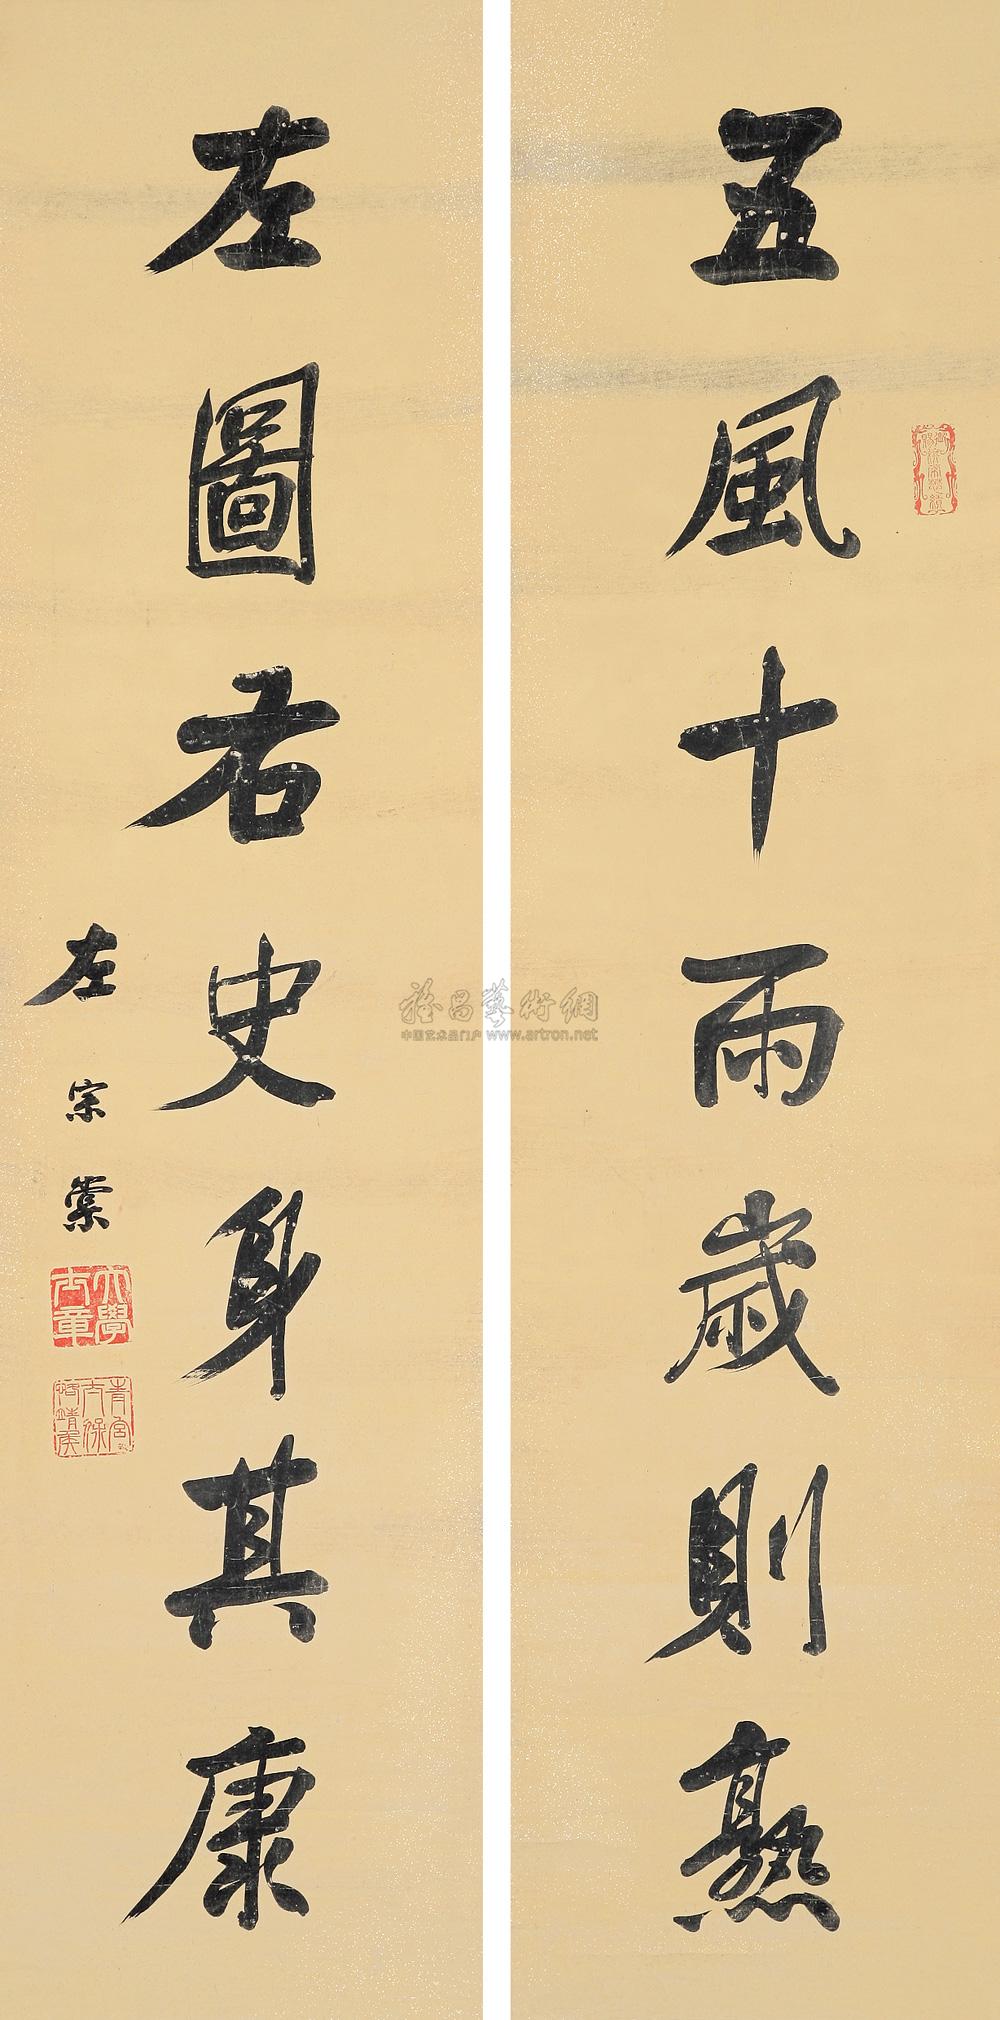 五風十雨歲則熟
左圖右史身其康
左宗棠
大學士章
青宮太保恪靖侯
雅昌藝術網
中国艺术品门户 www.artron.net